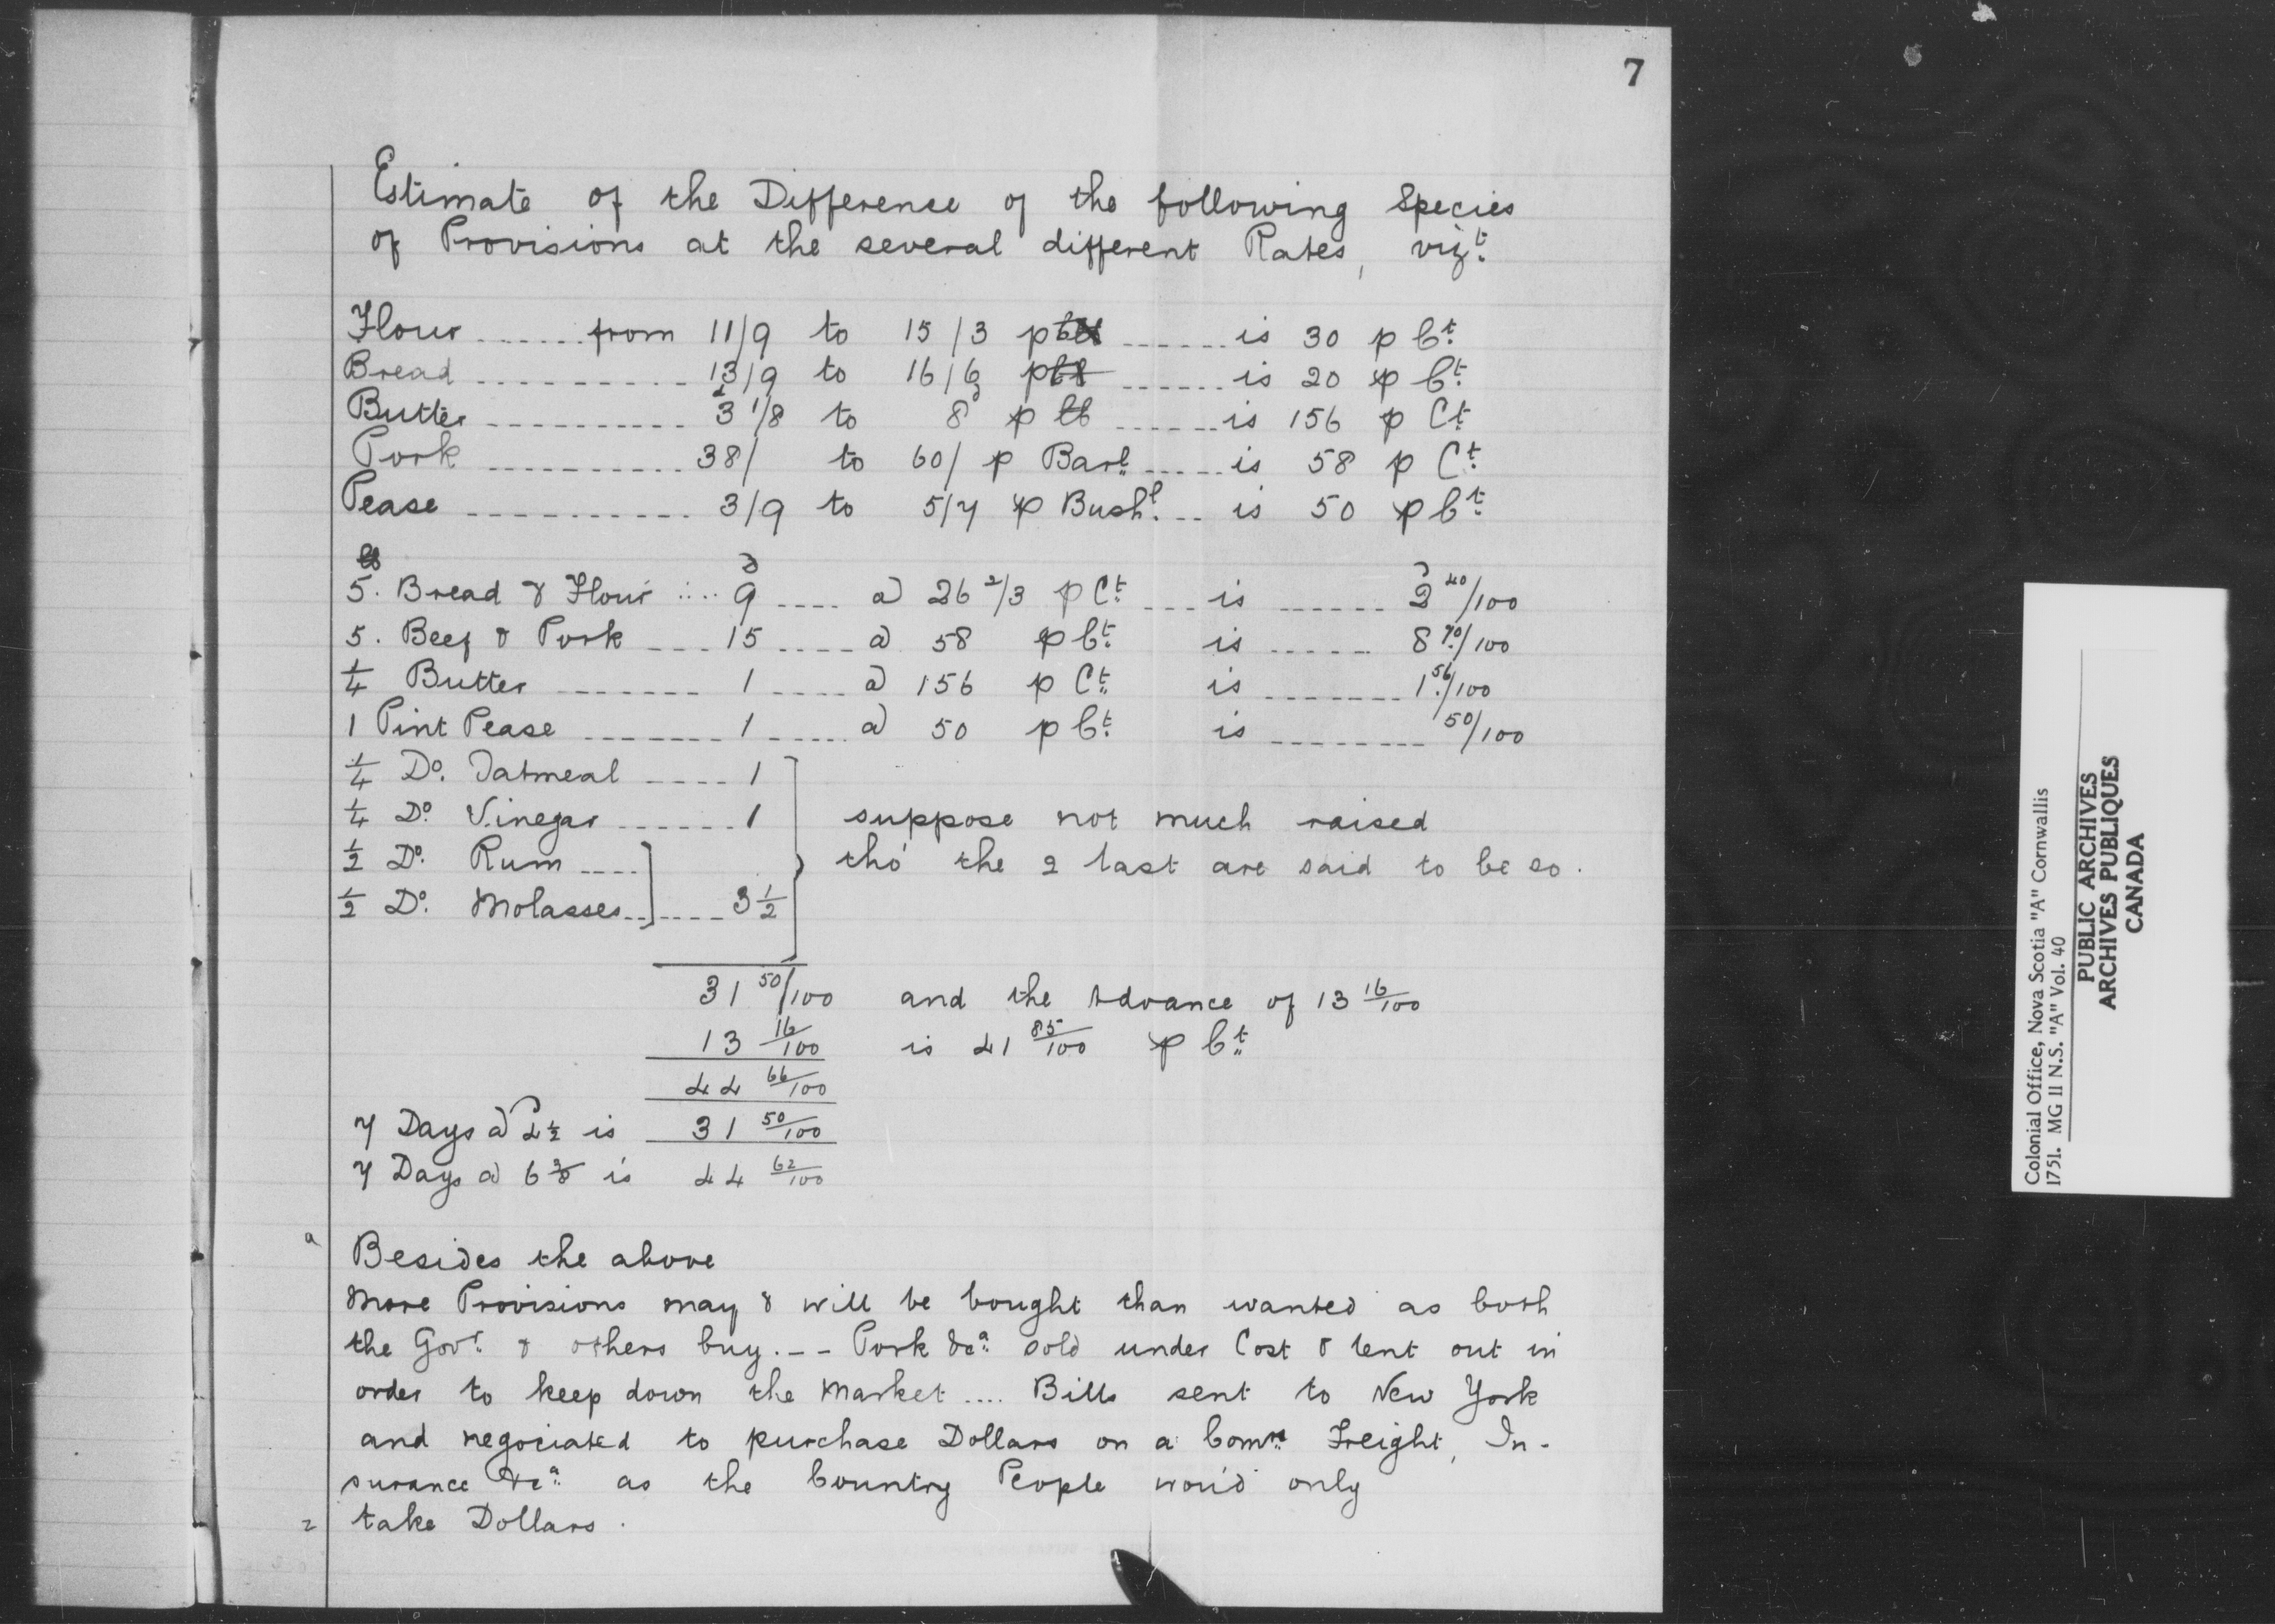 7
Estimate of the Difference of the following Species
of Provisions at the several different Rates, vizt.
Flour ....... from 11/9 to 15/3 p ...... is 30 p Ct.
Bread .......... 13/9 to 16/6 p ...... is 20 p Ct.
Butter .......... 3 1/8 d to 8d p lb ...... is 156 p Ct.
Pork .......... 38/ to 60/ p Barl. ..... is 58 p Ct.
Pease .......... 3/9 to 5/7 p Bushl. .. is 50 p Ct.
lb d
5. Bread & Flour .... 9 .... a) 26 2/3 p Ct. ... is ...... 2 40/100
5. Beef & Pork ... 15 .... a) 58 p Ct. is ...... 8 70/100
1/4 Butter ....... 1 .... a) 156 p Ct. is ....... 1 56/100
1 Pint Pease ....... 1 ..... a) 50 p Ct. is ........ 50/100
1/4 Do. Oatmeal .... 1
1/4 Do. Vinegar ...... 1 suppose not much raised
1/2 Do. Rum .... tho' the 2 last are said to be so.
1/2 Do. Molasses ...... 3 1/2
31 50/100 and the Advance of 13 16/100
13 16/100 is 41 85/100 p Ct.
44 66/100
7 Days a) 4 1/2 is 31 50/100
7 Days a) 6 3/8 is 44 62/100
a
Besides the above
More Provisions may & will be bought than wanted as both
the Govr. & others buy. -- Pork &ca. sold under Cost & lent out in
order to keep down the Market .... Bills sent to New York
and negociated to purchase Dollars on a Comn. Freight, In-
surance &ca. as the Country People wou'd only
z take Dollars.
Colonial Office, Nova Scotia "A" Cornwallis
1751. MG 11 N.S. "A" Vol. 40
PUBLIC ARCHIVES
ARCHIVES PUBLIQUES
CANADA